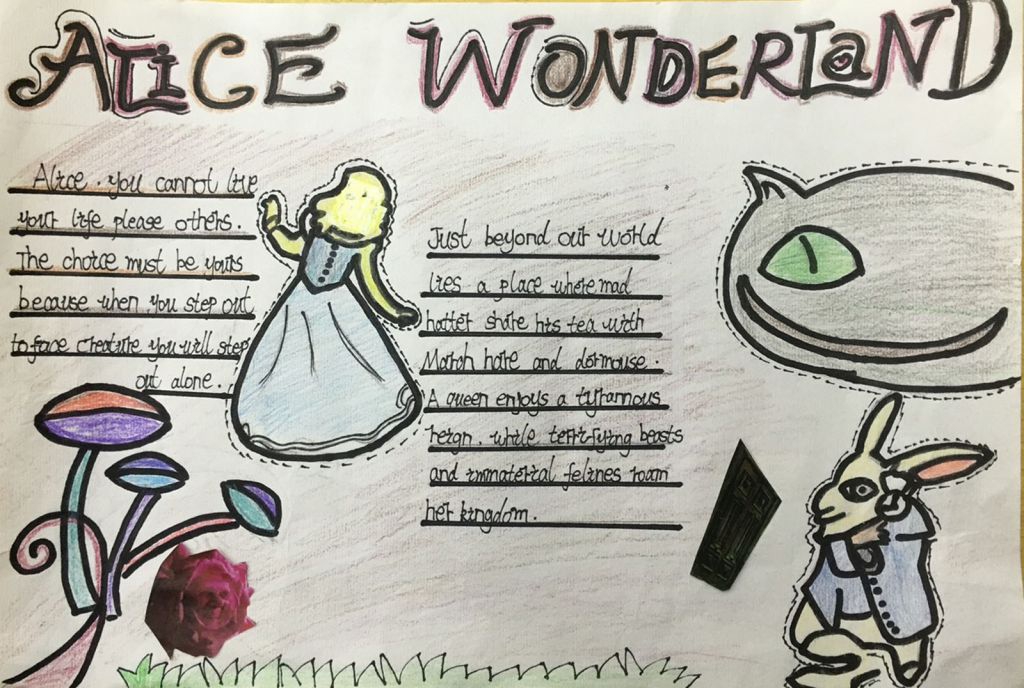 ALiCE WONDERLaND
Alice. you cannot live
your life please others.
The choice must be yours
because when you step out
to face creature you will step
out alone.
Just beyond our world
lies a place where mad
hatter share his tea with
March hare and dormouse.
A queen enjoys a tyrannous
reign. while terrifying beasts
and immaterial felines roam
her kingdom.